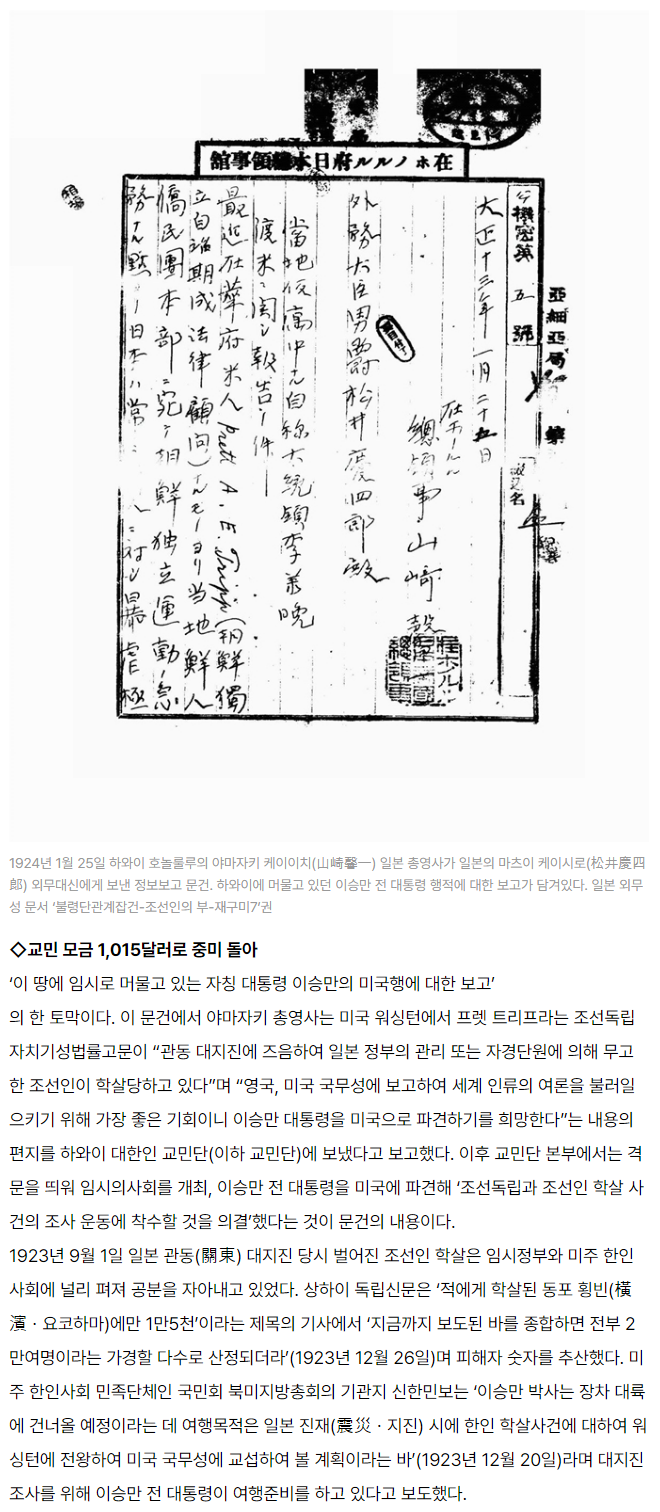 亞細亞局
在ホノルル府日本總領事館
公機密第 五 號
大正十三年一月二十五日
總領事 山崎
外務大臣男爵松井慶四郎殿
當地仮寓中ナル自称大統領李承晩
渡米ニ関シ報告ノ件
最近在華府米人 A. E. Tripp (朝鮮獨
立自治期成法律顧問)ナルモノヨリ当地鮮人
僑民團本部ニ宛テ朝鮮独立運動ノ急
務ナル點 日本ハ常ニ 人ニ対シ暴虐極
1924년 1월 25일 하와이 호놀룰루의 야마자키 케이이치(山崎馨一) 일본 총영사가 일본의 마츠이 케이시로(松井慶四
郎) 외무대신에게 보낸 정보보고 문건. 하와이에 머물고 있던 이승만 전 대통령 행적에 대한 보고가 담겨있다. 일본 외무
성 문서 ‘불령단관계잡건-조선인의 부-재구미7’권
◇교민 모금 1,015달러로 중미 돌아
‘이 땅에 임시로 머물고 있는 자칭 대통령 이승만의 미국행에 대한 보고’
의 한 토막이다. 이 문건에서 야마자키 총영사는 미국 워싱턴에서 프렛 트리프라는 조선독립
자치기성법률고문이 “관동 대지진에 즈음하여 일본 정부의 관리 또는 자경단원에 의해 무고
한 조선인이 학살당하고 있다”며 “영국, 미국 국무성에 보고하여 세계 인류의 여론을 불러일
으키기 위해 가장 좋은 기회이니 이승만 대통령을 미국으로 파견하기를 희망한다”는 내용의
편지를 하와이 대한인 교민단(이하 교민단)에 보냈다고 보고했다. 이후 교민단 본부에서는 격
문을 띄워 임시의사회를 개최, 이승만 전 대통령을 미국에 파견해 ‘조선독립과 조선인 학살 사
건의 조사 운동에 착수할 것을 의결’했다는 것이 문건의 내용이다.
1923년 9월 1일 일본 관동(關東) 대지진 당시 벌어진 조선인 학살은 임시정부와 미주 한인
사회에 널리 펴져 공분을 자아내고 있었다. 상하이 독립신문은 ‘적에게 학살된 동포 횡빈(橫
濱ㆍ요코하마)에만 1만5천’이라는 제목의 기사에서 ‘지금까지 보도된 바를 종합하면 전부 2
만여명이라는 가경할 다수로 산정되더라’(1923년 12월 26일)며 피해자 숫자를 추산했다. 미
주 한인사회 민족단체인 국민회 북미지방총회의 기관지 신한민보는 ‘이승만 박사는 장차 대륙
에 건너올 예정이라는 데 여행목적은 일본 진재(震災ㆍ지진) 시에 한인 학살사건에 대하여 워
싱턴에 전왕하여 미국 국무성에 교섭하여 볼 계획이라는 바’(1923년 12월 20일)라며 대지진
조사를 위해 이승만 전 대통령이 여행준비를 하고 있다고 보도했다.